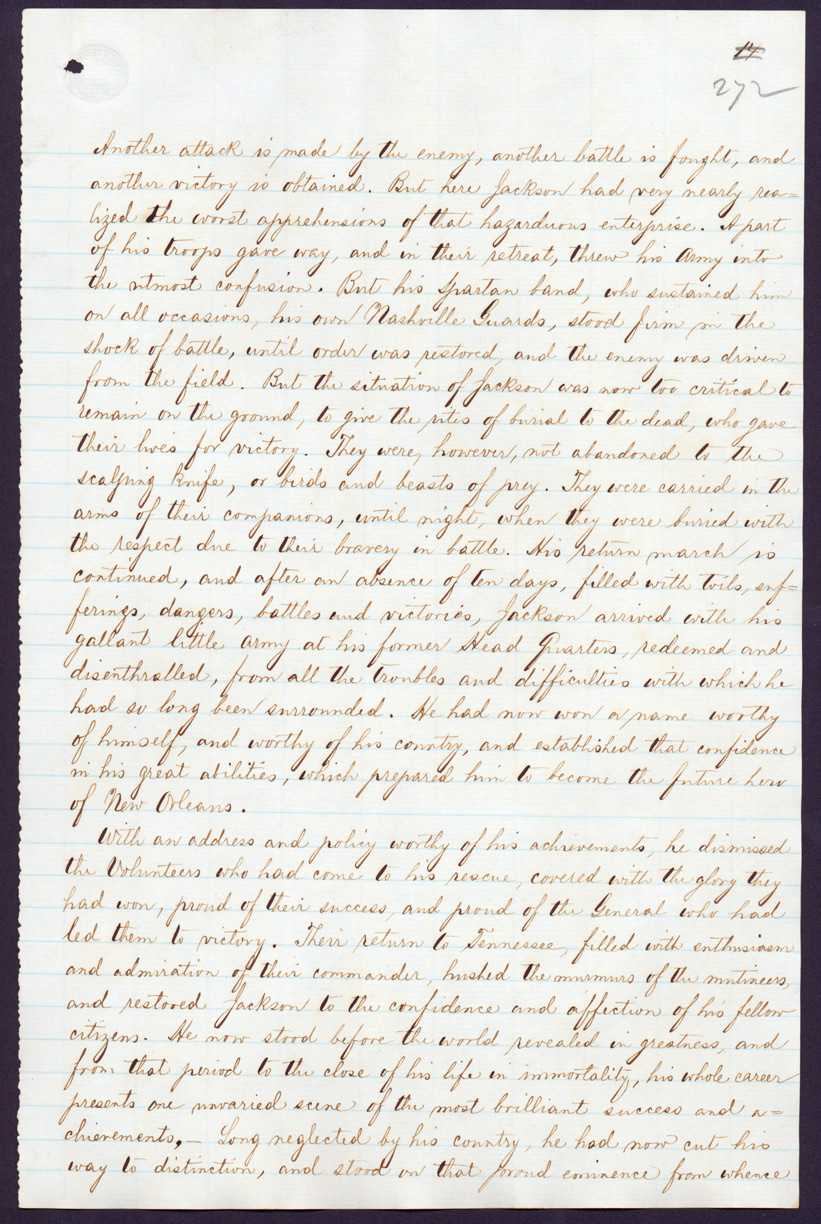 14
272
Another attack is made by the enemy, another battle is fought, and
another victory is obtained. But here Jackson had very nearly rea=
lized the worst apprehensions of that hazarduous enterprise. A part
of his troops gave way, and in their retreat, threw his Army into
the utmost confusion. But his Spartan band, who sustained him
on all occasions, his own Nashville Guards, stood firm in the
shock of battle, until order was restored, and the enemy was driven
from the field. But the situation of Jackson was now too critical to
remain on the ground, to give the rites of burial to the dead, who gave
their lives for victory. They were, however, not abandoned to the
scalping knife, or birds and beasts of prey. They were carried in the
arms of their companions, until night, when they were buried with
the respect due to their bravery in battle. His return march is
continued, and after an absence of ten days, filled with toils, suf=
ferings, dangers, battles and victories, Jackson arrived with his
gallant little army at his former Head Quarters, redeemed and
disenthralled, from all the troubles and difficulties with which he
had so long been surrounded. He had now won a name worthy
of himself, and worthy of his country, and established that confidence
in his great abilities, which prepared him to become the future hero
of New Orleans.
With an address and policy worthy of his achievements, he dismissed
the Volunteers who had come to his rescue, covered with the glory they
had won, proud of their success, and proud of the General who had
led them to victory. Their return to Tennessee, filled with enthusiasm
and admiration of their commander, hushed the murmurs of the mutineers,
and restored Jackson to the confidence and affection of his fellow
citizens. He now stood before the world revealed in greatness, and
from that period to the close of his life in immortality, his whole career
presents one unvaried scene of the most brilliant success and a=
chievements,— Long neglected by his country, he had now cut his
way to distinction, and stood on that proud eminence from whence